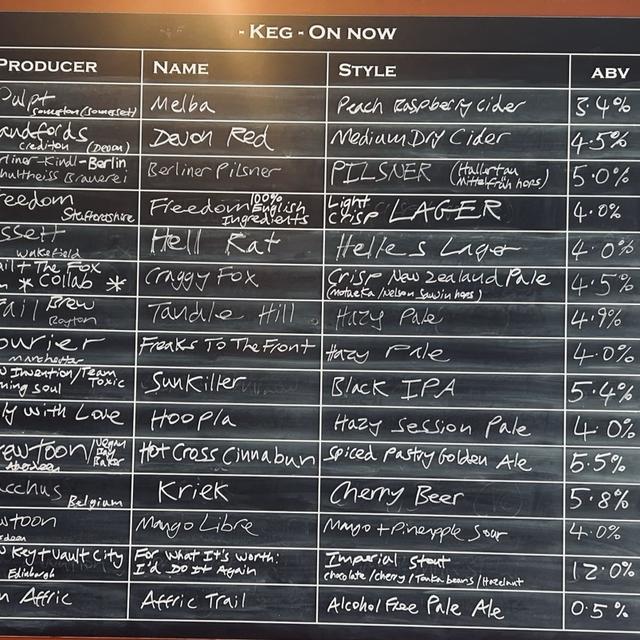 - KEG - ON NOW
PRODUCER NAME STYLE ABV
Pulpt Somerton (Somerset) Melba Peach Raspberry Cider 3.4%
andfords Crediton (Devon) Devon Red Medium Dry Cider 4.5%
rliner-Kindl-Berlin
hultheiss Brauerei Berliner Pilsner PILSNER (Hallertau Mittelfrüh hops) 5.0%
reedom Staffordshire Freedom 100% English Ingredients Light Crisp LAGER 4.0%
ssett Wakefield Hell Rat Helles Lager 4.0%
ail + The Fox
* Collab * Craggy Fox Crisp New Zealand Pale
(motueka/Nelson Sauvin hops) 4.5%
Fail Brew Royton Tandle Hill Hazy Pale 4.9%
ourier Manchester Freaks To The Front Hazy Pale 4.0%
Invention/Team Toxic
ning soul SunKiller Black IPA 5.4%
ly with Love Hoopla Hazy Session Pale 4.0%
rewtoon/Vegan Bay Baker
Aberdeen Hot Cross Cinnabun Spiced Pastry Golden Ale 5.5%
cchus Belgium Kriek Cherry Beer 5.8%
wtoon
deen Mango Libre Mango + Pineapple Sour 4.0%
Key + Vault City
Edinburgh For What It's Worth:
I'd Do It Again Imperial Stout
chocolate/cherry/Tonka beans/Hazelnut 12.0%
n Affric Affric Trail Alcohol Free Pale Ale 0.5%